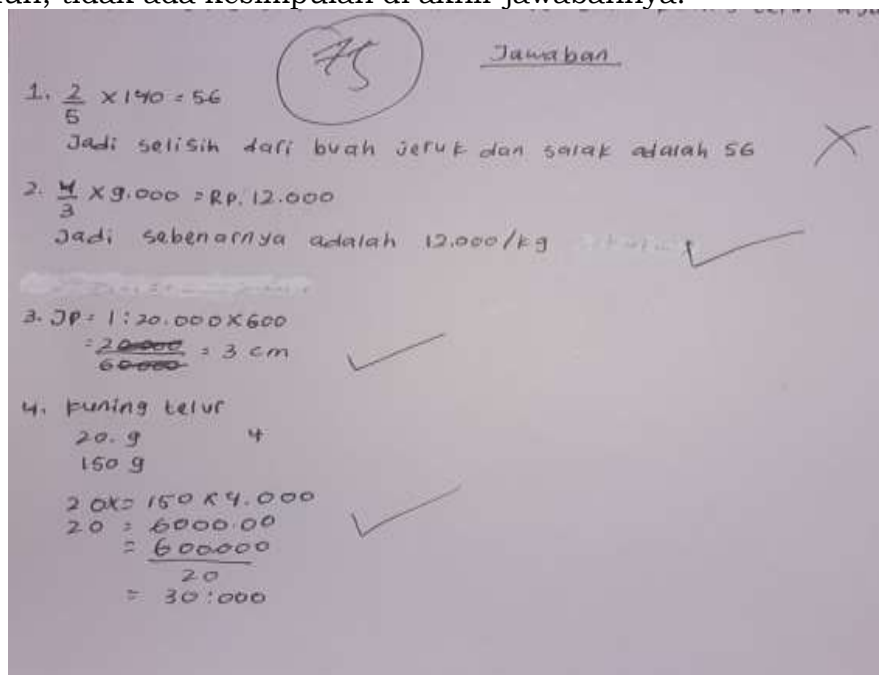 tidak ada kesimpulan di akhir jawabannya.
75
Jawaban
1. 2/5 x 140 = 56
Jadi selisih dari buah jeruk dan salak adalah 56
2. 4/3 x 9.000 = Rp. 12.000
Jadi sebenarnya adalah 12.000/kg
3. JP = 1 : 20.000 x 600
= 20.000/60000 = 3 cm
4. kuning telur
20. g 4
150 g
20x = 150 x 4.000
20 = 6000.00
= 600000
20
= 30:000